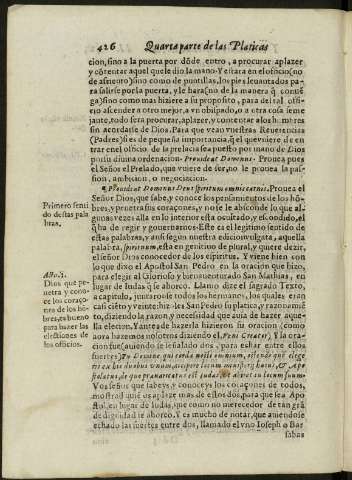 426 Quarta parte de las Platicas
cion, sino a la puerta por dōde entro, a procurar aplazer
y cōtentar aquel que le dio la mano. Y estara en el oficio (no
de asiento) sino como de puntillas, los pies leuantados pa-
ra salirse por la puerta, y le harà (no de la manera q̄ conuē-
ga) sino como mas hiziere a su proposito, para de tal offi-
cio ascender a otro mejor, a vn obispado, o a otra cosa seme
jante, todo sera procurar, aplazer, y contentar a los hombres
sin acordarse de Dios. Para que vean vuestras Reuerencias
(Padres) si es de pequeña importancia, q̄ el que viniere de en
trar en el oficio de la prelacia sea puesto por mano de Dios
por su diuina ordenacion. Prouideat Dominus. Prouea pues
el Señor el Prelado, que viniere de ser, no le prouea la pas-
sion, ambicion, o negociacion.
Prouideat Dominus Deus spirituum omnis carnis. Prouea el
Primero senti
do destas pala
bras.
Señor Dios, que sabe, y conoce los pensamientos de los hō-
bres, y penetra sus coraçones, y no le es abscōdido lo que al-
gunas vezes alla en lo interior esta ocultado, y escondido, el
q̄ ha de regir y gouernarnos. Este es el legitimo sentido de
estas palabras, y ansi segun nuestra edicion vulgata, aquella
palabra, spirituum, esta en genitiuo de plural, y quiere dezir,
el señor Dios conocedor de los espiritus. Y viene bien con
lo que dixo el Apostol San Pedro en la oracion que hizo,
para elegir al Glorioso y bienauenturado San Mathias, en
Acto. 1.
Dios que pe-
netra y cono-
ce los coraço-
nes de los hō-
bres, es bueno
para hazer las
electiones de
los oficios.
lugar de Iudas que se ahorco. Llamo dize el sagrado Texto,
a capitulo, juntaronse todos los hermanos, los quales eran
casi ciēto y veinte, hizoles San Pedro su platica, y razonamiē-
to, diziendo la razon, y necessidad que auia de hazer aque-
lla eleccion. Y antes de hazerla hizieron su oracion (como
aora hazemos nosotros diziendo el, Veni Creator) Y la ora-
cion fue (auiendo señalado dos, para echar entre ellos
suertes) Tu Domine qui corda nosti omnium, ostende quem elege
ris ex his duobus vnum, accipere locum ministerij huius, & Apo
stolatus, de quo praeuaricatus est Iudas, vt abiret in locum suum.
Vos señor que sabeys, y conoceys los coraçones de todos,
mostrad qual os aplaze mas de estos dos, para que sea Apo
stol, en lugar de Iudas, que como no merecedor de tan grā
de dignidad se ahorco. Y es mucho de notar, que auiendose
echado las suertes entre dos, llamado el vno Ioseph o Bar
sabas